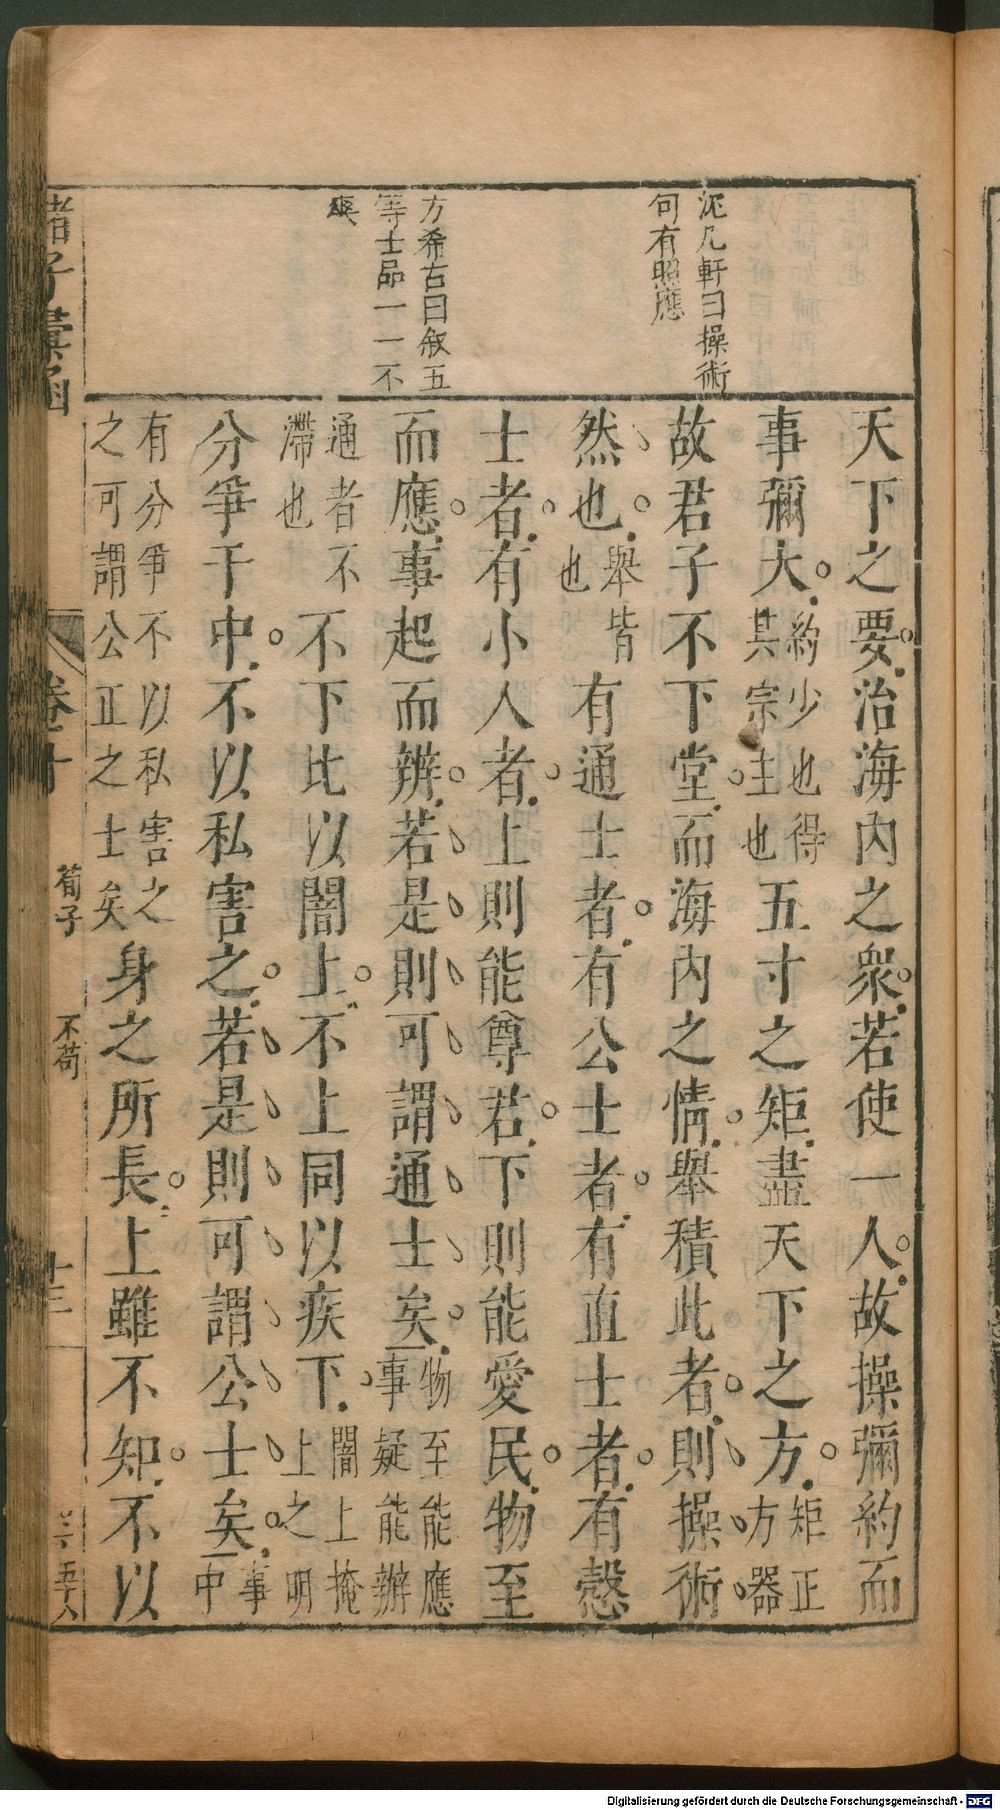 沈几軒曰操術
句有照應
方希古曰叙五
等士品一一不
爽
天下之要治海內之衆若使一人故操彌約而
事彌大約少也得其宗主也五寸之矩盡天下之方矩正方器
故君子不下堂而海內之情舉積此者則操術
然也舉皆也有通士者有公士者有直士者有愨
士者有小人者上則能尊君下則能愛民物至
而應事起而辨若是則可謂通士矣物至能應事疑能辦
通者不滯也不下比以闇上不上同以疾下闇上掩上之明
分爭于中不以私害之若是則可謂公士矣事中
有分爭不以私害之之可謂公正之士矣身之所長上雖不知不以
諸子彙函
卷十
荀子
不苟
十三
Digitalisierung gefördert durch die Deutsche Forschungsgemeinschaft - DFG